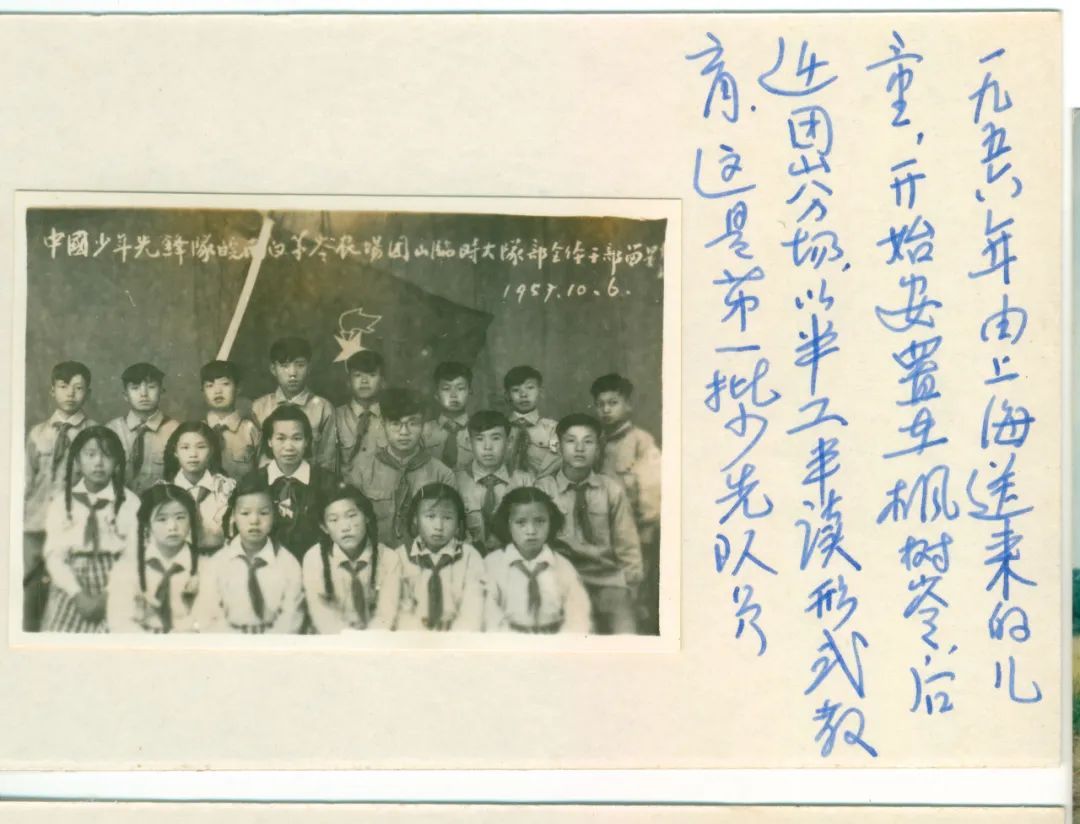 一九五六年由上海送来的儿
童,开始安置在枫树岺,后
迁团山分场,以半工半读形式教
育.这是第一批少先队员
中國少年先鋒隊皖南白茅岺农場团山臨时大隊部全体干部留影
1957.10.6.